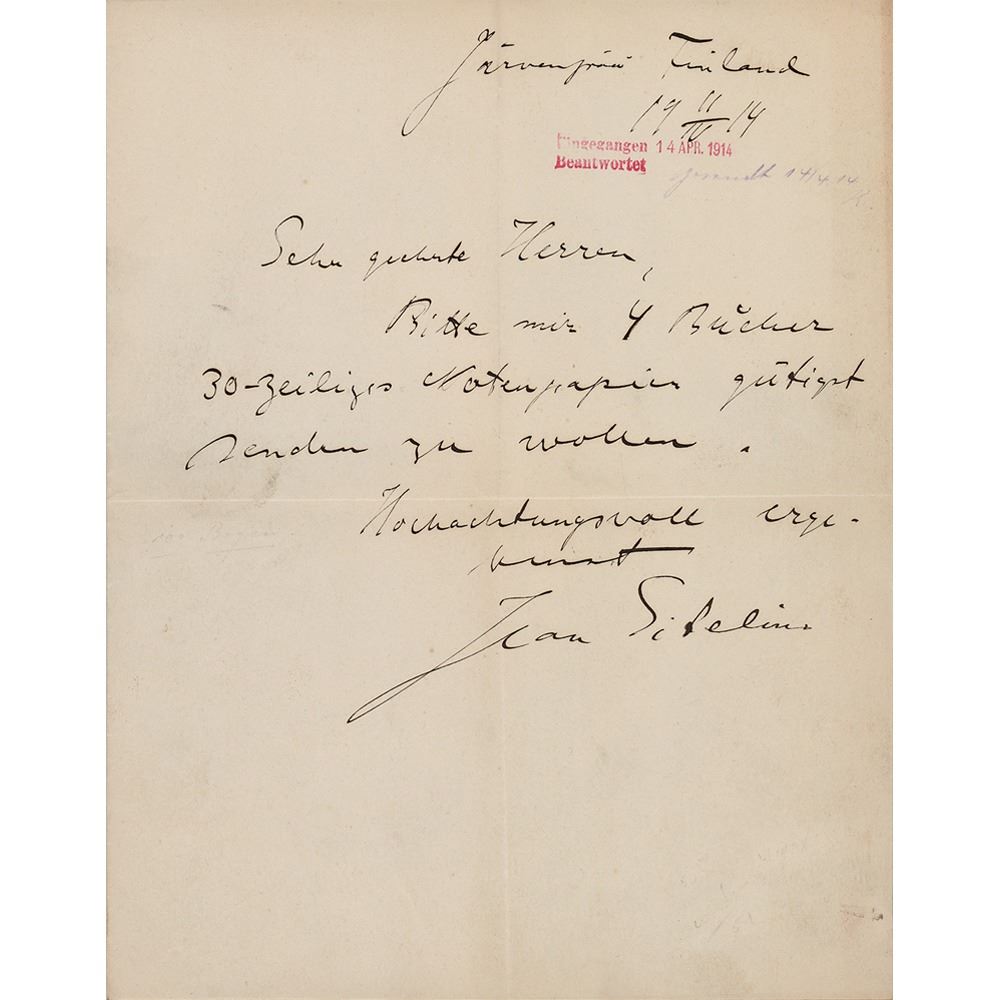 Järvenpää Finland
19 11/IV 14
Eingegangen 14 APR. 1914
Beantwortet
gesandt 14/4 14
Sehr geehrte Herren,
Bitte mir 4 Bücher
30-zeiliges Notenpapier gütigst
senden zu wollen.
Hochachtungsvoll erge-
benst
Jean Sibelius